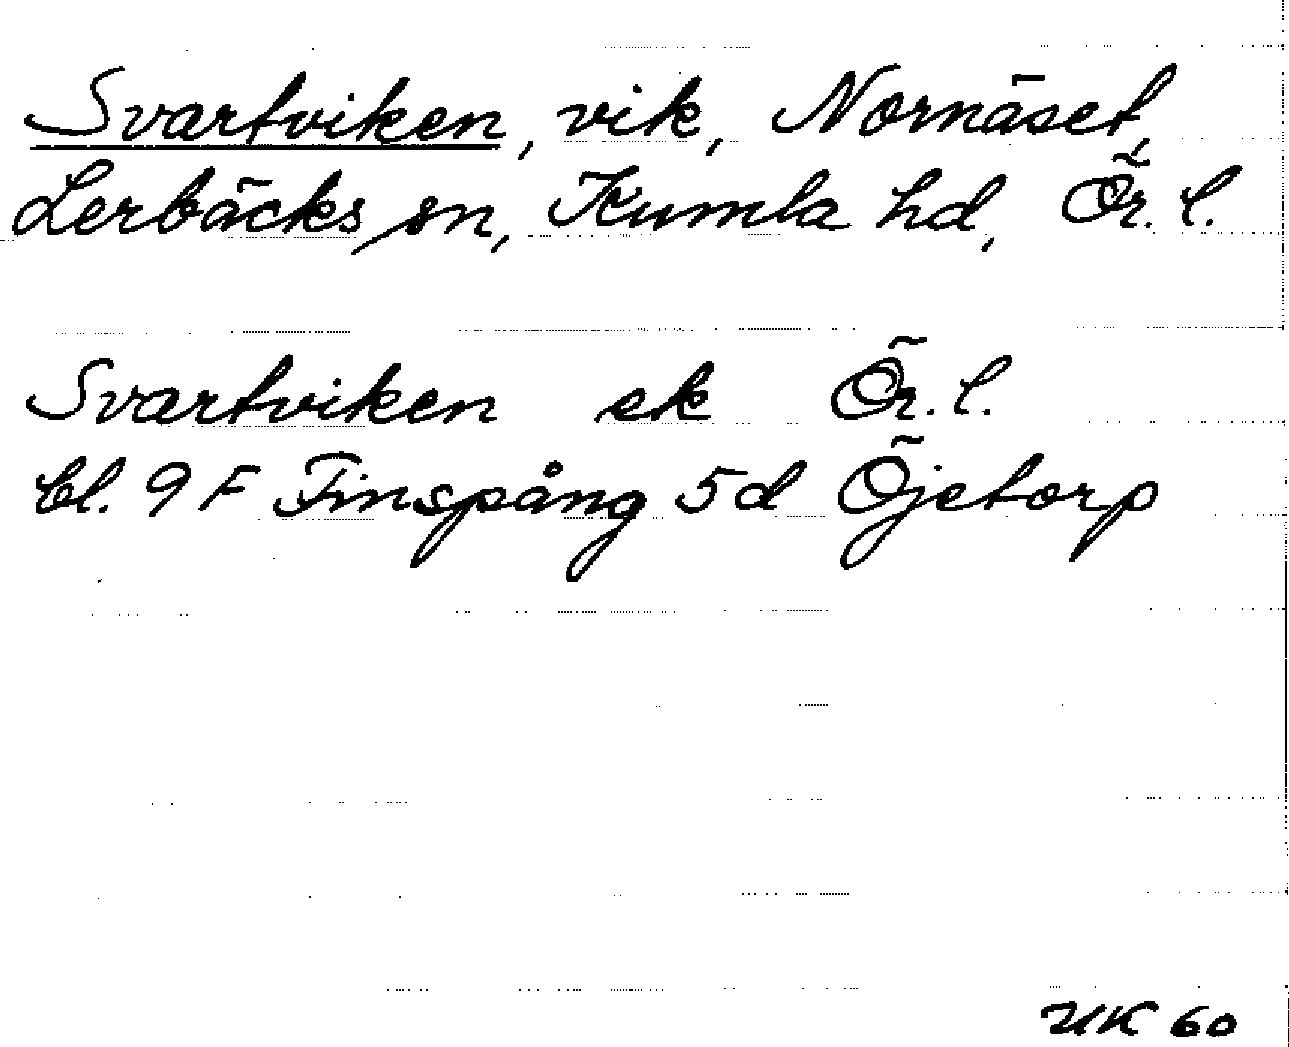 Svartviken, vik, Nornäset,
Lerbäcks sn, Kumla hd, Ör. l.
Svartviken ek Ör. l.
bl. 9 F Finspång 5d Öjetorp
UK 60